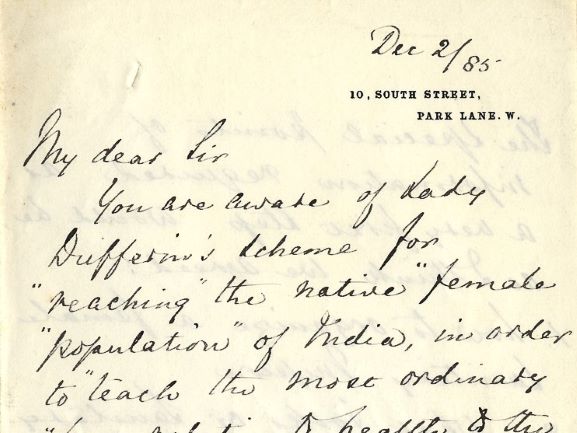 Dec 2/85
10, SOUTH STREET,
PARK LANE. W.
My dear Sir
You are aware of Lady
Dufferin's scheme for
"reaching" the native "female
"population" of India, in order
to "teach the most ordinary
health to the